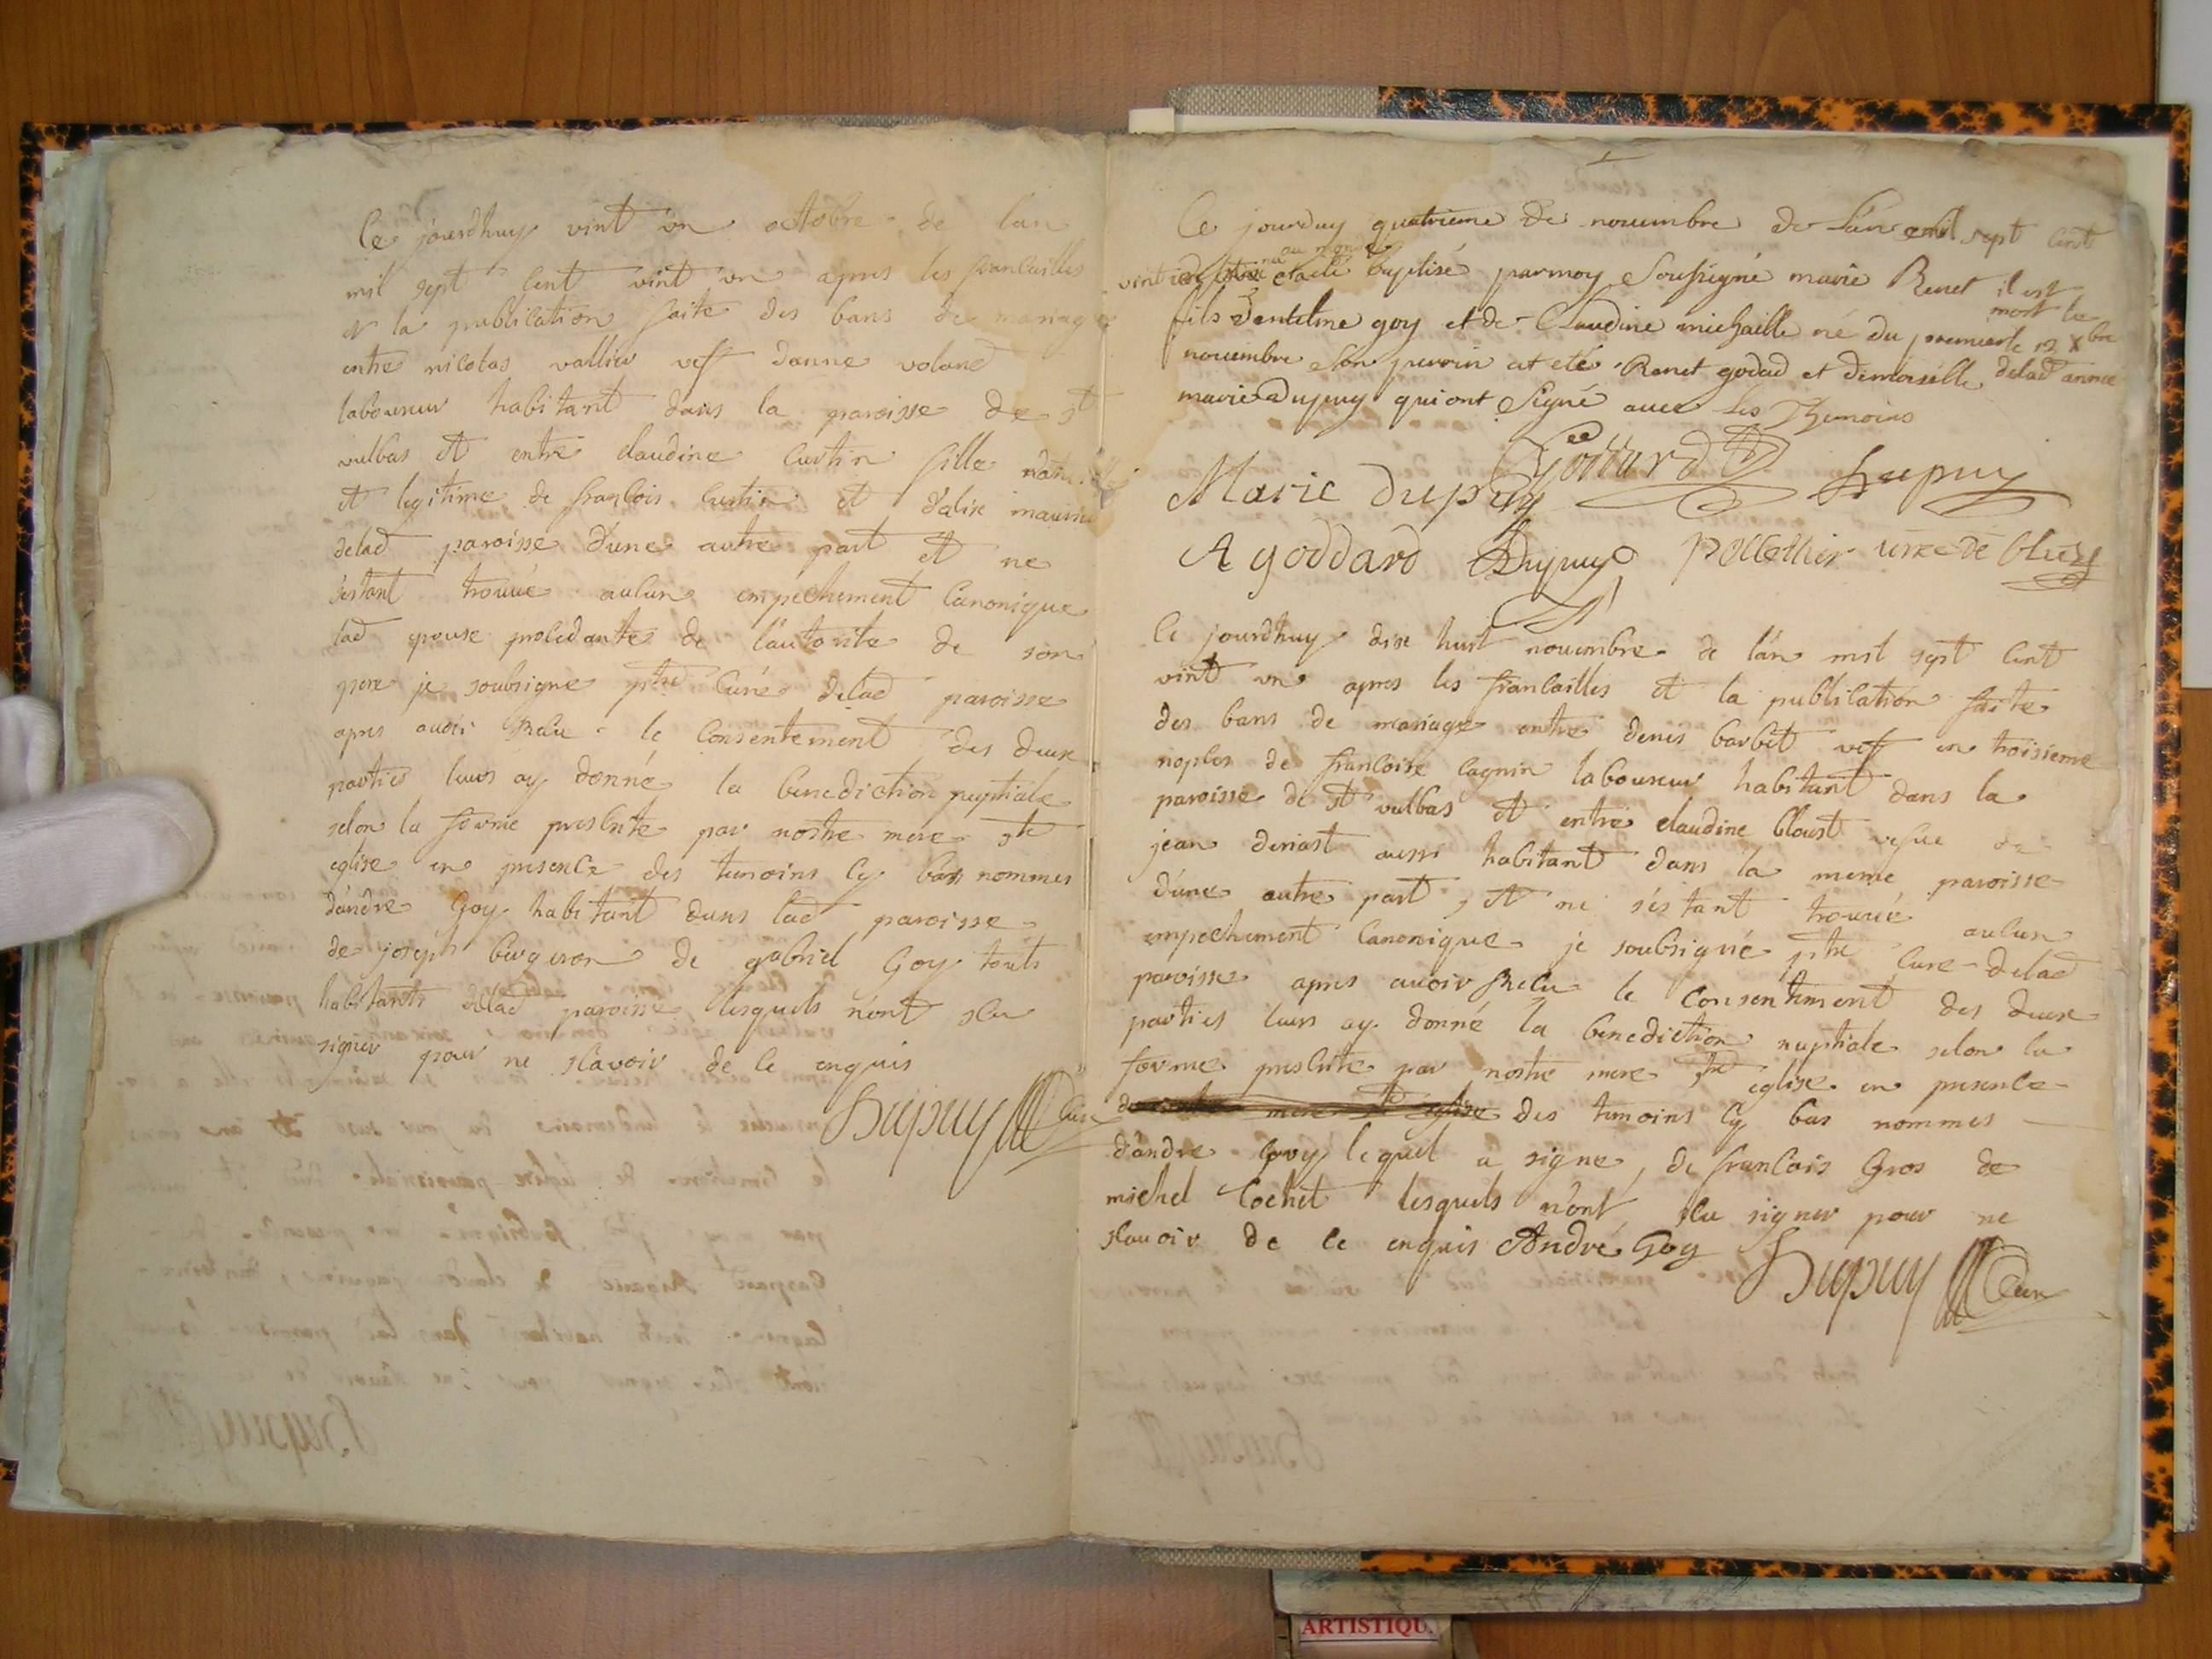 Ce jourdhuy vint un octobre de lan
mil sept cent vint un apres les fiancailles
et la publication faite des bans de mariage
entre nicolas vallier vef danne voland
laboureur habitant dans la paroisse de st
vulbas et entre claudine curtin fille
et legitime de francois curtin et dalix
delad paroisse d'une autre part et ne
s'estant trouvé aulcun empéchement canonique
lad epouse procedante de l'autorite de son
pere je soubsigne ptre curé delad paroisse
apres avoir Recu le consentement des deux
parties leurs ay donné la benediction nuptiale
selon la forme prescrite par nostre mere ste
eglise en presence des temoins cy bas nommes
d'andre Goy habitant dans lad paroisse
de joseph bergeron de gabriel Goy touts
habitants delad paroisse lesquels n'ont scu
signer pour ne scavoir de ce enquis
Dupuy Curé
Ce jourduy quatrieme de nouembre de l'an mil sept cent
au monde
vint et esté baptisé par moy soussigné marie Renet
fils d'antelme goy et de Claudine michaille né du premier
nouembre son perrin at eté Renet godad et dimoiselle
marie Dupuy qui ont signé auec les Themoins
il est
mort le
le 12 Xbre
delad année
Goddard Dupuy
Marie Dupuy
A goddard Dupuy pellettier
Ce jourdhuy dix huit nouembre de l'an mil sept cent
vint un apres les fiancailles et la publication faite
des bans de mariage entre denis barbet vef en troisieme
nopces de francoise cagnin laboureur habitant dans la
paroisse de st vulbas et entre claudine vefue de
jean deriast aussi habitant dans la meme paroisse
d'une autre part, et ne s'estant trouvé aulcun
empechement canonique je soubsigné ptre cure delad
paroisse apres avoir Recu le consentiment des deux
parties leurs ay donné la benediction nuptiale selon la
forme prescrite par nostre mere ste eglise en presence
des temoins cy bas nommes
d'andre goy lequel a signe, de francois Gros de
michel Cochet lesquels n'ont scu signer pour ne
scavoir de ce enquis André Goy
Dupuy Cure
ARTISTIQU